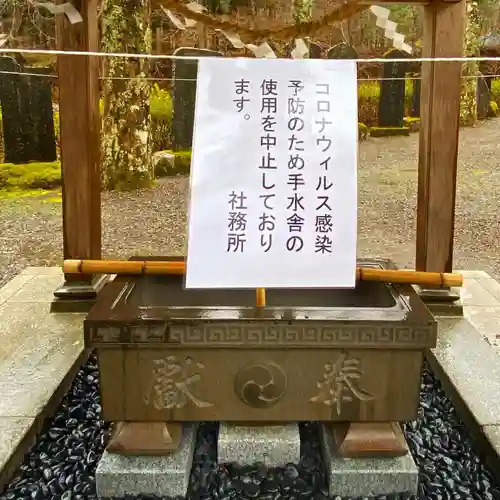 コロナウィルス感染
予防のため手水舎の
使用を中止しており
ます。
社務所
奉献